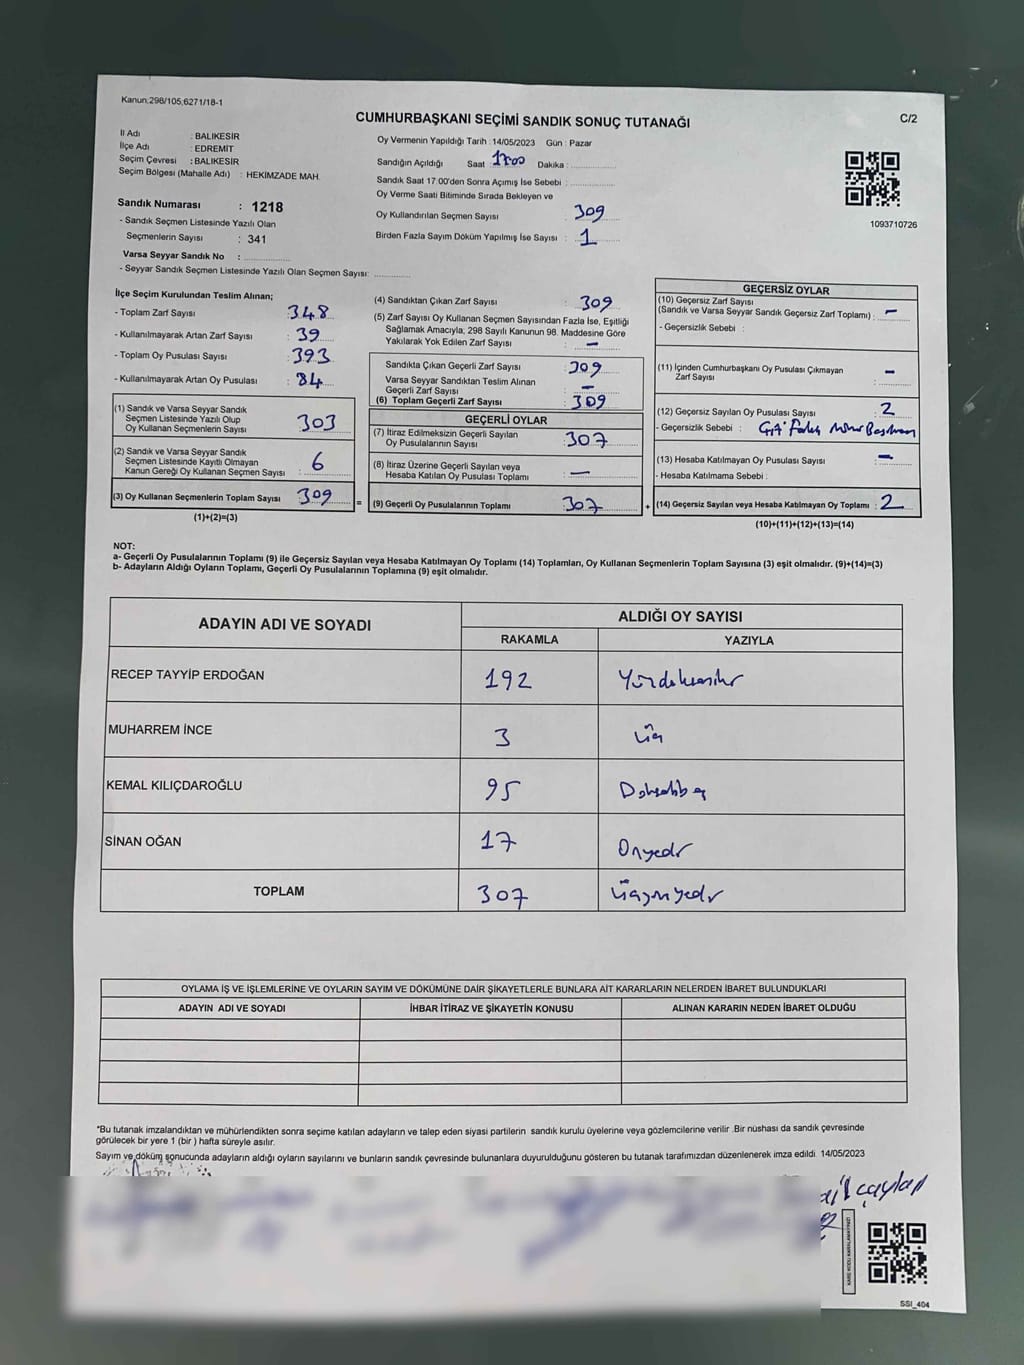 Kanun;298/105;6271/18-1
CUMHURBAŞKANI SEÇİMİ SANDIK SONUÇ TUTANAĞI
C/2
İl Adı : BALIKESİR
İlçe Adı : EDREMİT
Seçim Çevresi : BALIKESİR
Seçim Bölgesi (Mahalle Adı) : HEKİMZADE MAH.
Oy Vermenin Yapıldığı Tarih : 14/05/2023 Gün : Pazar
Sandığın Açıldığı Saat 1700 Dakika :
Sandık Saat 17:00'den Sonra Açımış İse Sebebi :
Oy Verme Saati Bitiminde Sırada Bekleyen ve
Oy Kullandırılan Seçmen Sayısı 309
Birden Fazla Sayım Döküm Yapılmış İse Sayısı : 1
1093710726
Sandık Numarası : 1218
- Sandık Seçmen Listesinde Yazılı Olan
Seçmenlerin Sayısı : 341
Varsa Seyyar Sandık No :
- Seyyar Sandık Seçmen Listesinde Yazılı Olan Seçmen Sayısı:
İlçe Seçim Kurulundan Teslim Alınan;
- Toplam Zarf Sayısı : 348
- Kullanılmayarak Artan Zarf Sayısı : 39
- Toplam Oy Pusulası Sayısı : 393
- Kullanılmayarak Artan Oy Pusulası : 84
(1) Sandık ve Varsa Seyyar Sandık
Seçmen Listesinde Yazılı Olup
Oy Kullanan Seçmenlerin Sayısı : 303
(2) Sandık ve Varsa Seyyar Sandık
Seçmen Listesinde Kayıtlı Olmayan
Kanun Gereği Oy Kullanan Seçmen Sayısı : 6
(3) Oy Kullanan Seçmenlerin Toplam Sayısı : 309 =
(1)+(2)=(3)
(4) Sandıktan Çıkan Zarf Sayısı : 309
(5) Zarf Sayısı Oy Kullanan Seçmen Sayısından Fazla İse, Eşitliği
Sağlamak Amacıyla, 298 Sayılı Kanunun 98. Maddesine Göre
Yakılarak Yok Edilen Zarf Sayısı : —
Sandıkta Çıkan Geçerli Zarf Sayısı : 309
Varsa Seyyar Sandıktan Teslim Alınan
Geçerli Zarf Sayısı : —
(6) Toplam Geçerli Zarf Sayısı : 309
GEÇERLİ OYLAR
(7) İtiraz Edilmeksizin Geçerli Sayılan
Oy Pusulalarının Sayısı : 307
(8) İtiraz Üzerine Geçerli Sayılan veya
Hesaba Katılan Oy Pusulası Toplamı : —
(9) Geçerli Oy Pusulalarının Toplamı : 307 +
GEÇERSİZ OYLAR
(10) Geçersiz Zarf Sayısı
(Sandık ve Varsa Seyyar Sandık Geçersiz Zarf Toplamı) : —
- Geçersizlik Sebebi :
(11) İçinden Cumhurbaşkanı Oy Pusulası Çıkmayan
Zarf Sayısı : —
(12) Geçersiz Sayılan Oy Pusulası Sayısı : 2
- Geçersizlik Sebebi :
(13) Hesaba Katılmayan Oy Pusulası Sayısı : —
- Hesaba Katılmama Sebebi :
(14) Geçersiz Sayılan veya Hesaba Katılmayan Oy Toplamı : 2
(10)+(11)+(12)+(13)=(14)
NOT:
a- Geçerli Oy Pusulalarının Toplamı (9) ile Geçersiz Sayılan veya Hesaba Katılmayan Oy Toplamı (14) Toplamları, Oy Kullanan Seçmenlerin Toplam Sayısına (3) eşit olmalıdır. (9)+(14)=(3)
b- Adayların Aldığı Oyların Toplamı, Geçerli Oy Pusulalarının Toplamına (9) eşit olmalıdır.
ADAYIN ADI VE SOYADI ALDIĞI OY SAYISI
RAKAMLA YAZIYLA
RECEP TAYYİP ERDOĞAN 192
MUHARREM İNCE 3 Üç
KEMAL KILIÇDAROĞLU 95
SİNAN OĞAN 17 Onyedi
TOPLAM 307 Üçyüzyedi
OYLAMA İŞ VE İŞLEMLERİNE VE OYLARIN SAYIM VE DÖKÜMÜNE DAİR ŞİKAYETLERLE BUNLARA AİT KARARLARIN NELERDEN İBARET BULUNDUKLARI
ADAYIN ADI VE SOYADI İHBAR İTİRAZ VE ŞİKAYETİN KONUSU ALINAN KARARIN NEDEN İBARET OLDUĞU
*Bu tutanak imzalandıktan ve mühürlendikten sonra seçime katılan adayların ve talep eden siyasi partilerin sandık kurulu üyelerine veya gözlemcilerine verilir .Bir nüshası da sandık çevresinde
görülecek bir yere 1 (bir ) hafta süreyle asılır.
Sayım ve döküm sonucunda adayların aldığı oyların sayılarını ve bunların sandık çevresinde bulunanlara duyurulduğunu gösteren bu tutanak tarafımızdan düzenlenerek imza edildi. 14/05/2023
KARE KODU KARALAMAYINIZ!
SSI_404